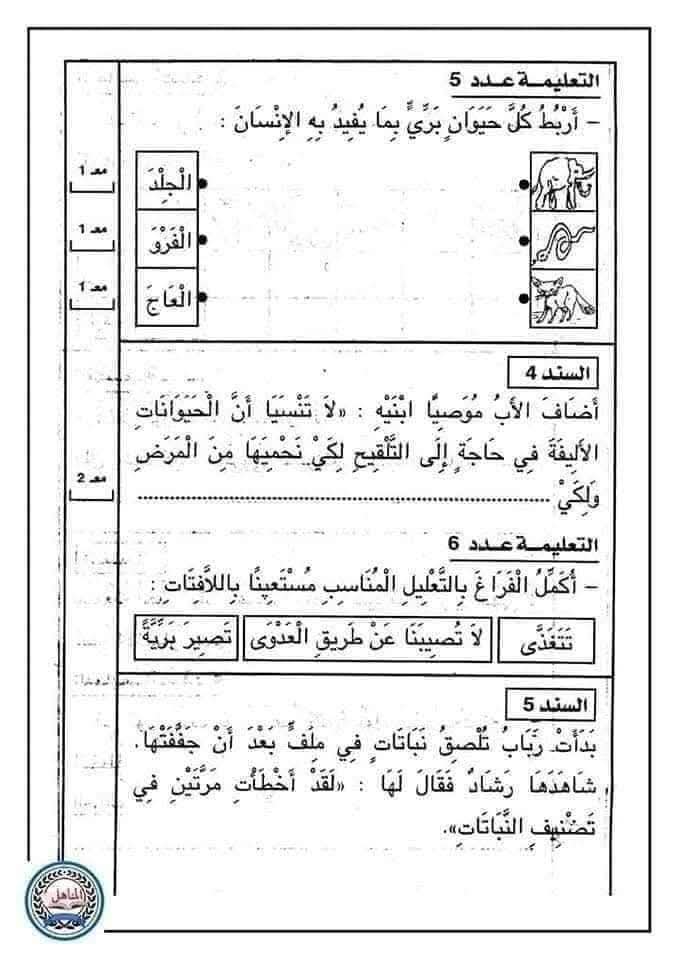 التعليمـة عـدد 5
– أَرْبُطُ كُلَّ حَيَوَانٍ بَرِّيٍّ بِمَا يُفِيدُ بِهِ الإِنْسَانَ :
معـ 1
الْجِلْدَ
معـ 1
الْفَرْوَ
معـ 1
الْعَاجَ
السند 4
أَضَافَ الأَبُ مُوَصِيًّا ابْنَيْهِ : «لاَ تَنْسَيَا أَنَّ الْحَيَوَانَاتِ
الأَلِيفَةَ فِي حَاجَةٍ إِلَى التَّلْقِيحِ لِكَيْ نَحْمِيَهَا مِنَ الْمَرَضِ
معـ 2
وَلِكَيْ ........................................
التعليمـة عـدد 6
– أُكَمِّلُ الْفَرَاغَ بِالتَّعْلِيلِ الْمُنَاسِبِ مُسْتَعِينًا بِاللاَّفِتَاتِ :
تَتَغَذَّى
لاَ تُصِيبَنَا عَنْ طَرِيقِ الْعَدْوَى
تَصِيرَ بَرِّيَّةً
السند 5
بَدَأَتْ رَبَابُ تُلْصِقُ نَبَاتَاتٍ فِي مِلَفٍّ بَعْدَ أَنْ جَفَّفَتْهَا.
شَاهَدَهَا رَشَادُ فَقَالَ لَهَا : «لَقَدْ أَخْطَأْتِ مَرَّتَيْنِ فِي
تَصْنِيفِ النَّبَاتَاتِ».
المناهل